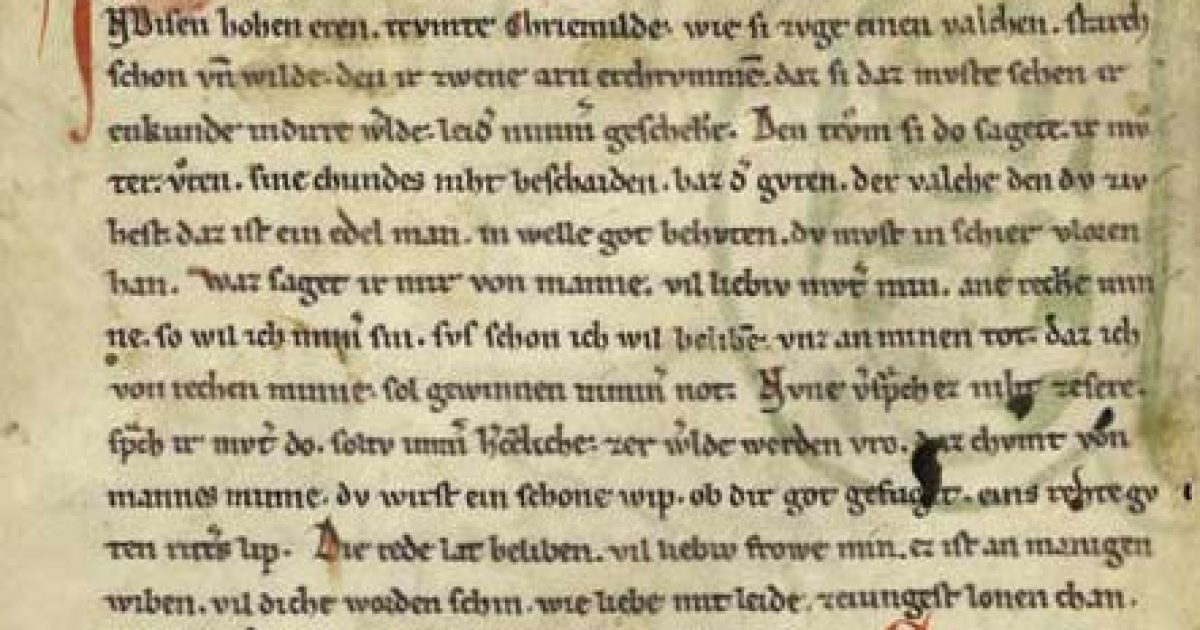 JN Disen hohen eren. trvmte Chriemilde. wie si zvge einen valchen. starch
schon vn̄ wilde. den ir zwene arn erchrvmmē. daz si daz mvste sehen ir
enkunde in dirre w͛lde. leid͛ nimm͛ geschehē. Den trvͦm si do saget. ir mvͦ
ter. vͦten. sine chundes niht beschaiden. baz d͛ gvten. der valche den dv ziv
hest. daz ist ein edel man. in welle got behvten. dv mvst in schier vloren
han. Waz saget ir mir von manne. vil liebiv mvt͛ min. ane reckē min
ne. so wil ich imm͛ sin. svs schon ich wil belibē. vnz an minen tot. daz ich
von rechen minne. sol gewinnen nimm͛ not. Nvne v͛sp̄ch ez niht ze sere.
sp̄ch ir mvt͛ do. soltv imm͛ h͛cēliche. zer w͛lde werden vro. daz chvmt von
mannes minne. dv wirst ein schone wip. ob dir got gefuget. eins rehte gv
ten rit͛s lip. Die rede lat beliben. vil liebiv frowe min. ez ist an manigen
wiben. vil diche worden schin. wie liebe mit leide. ze iungest lonen chan.